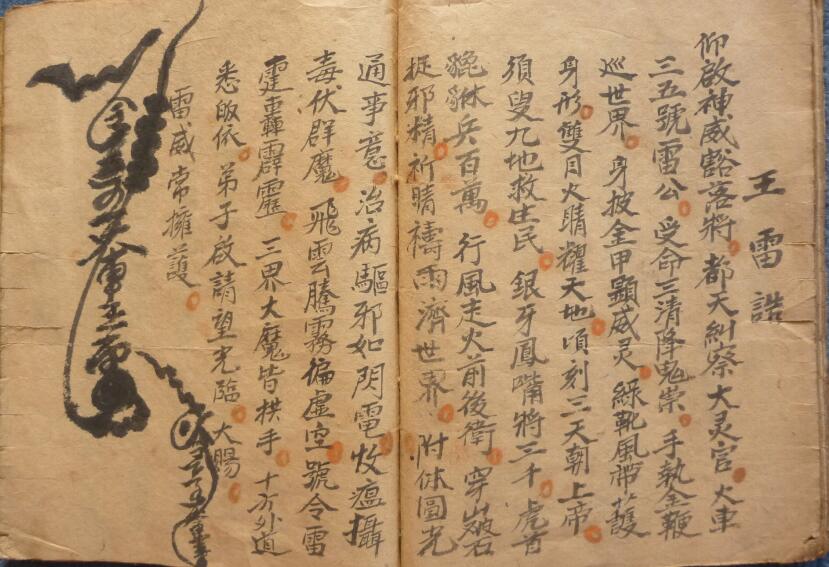 王雷誥
仰啟神威豁落將都天糾察大灵官火車
三五號雷公受命三清降鬼祟手執金鞭
巡世界身披金甲顯威灵綠靴風帶護
身形雙目火睛耀天地頃刻三天朝上帝
須叟九地救生民銀牙鳳嘴將三千虎首
貔貅兵百萬行風走火前後衛穿山破石
捉邪精祈晴禱雨濟世界附体圓光
通事意治病驅邪如閃電收瘟攝
毒伏群魔飛雲騰霧徧虛空號令雷
霆轟霹靂三界大魔皆拱手十方外道
悉皈依弟子啟請望光臨大賜
雷威常擁護